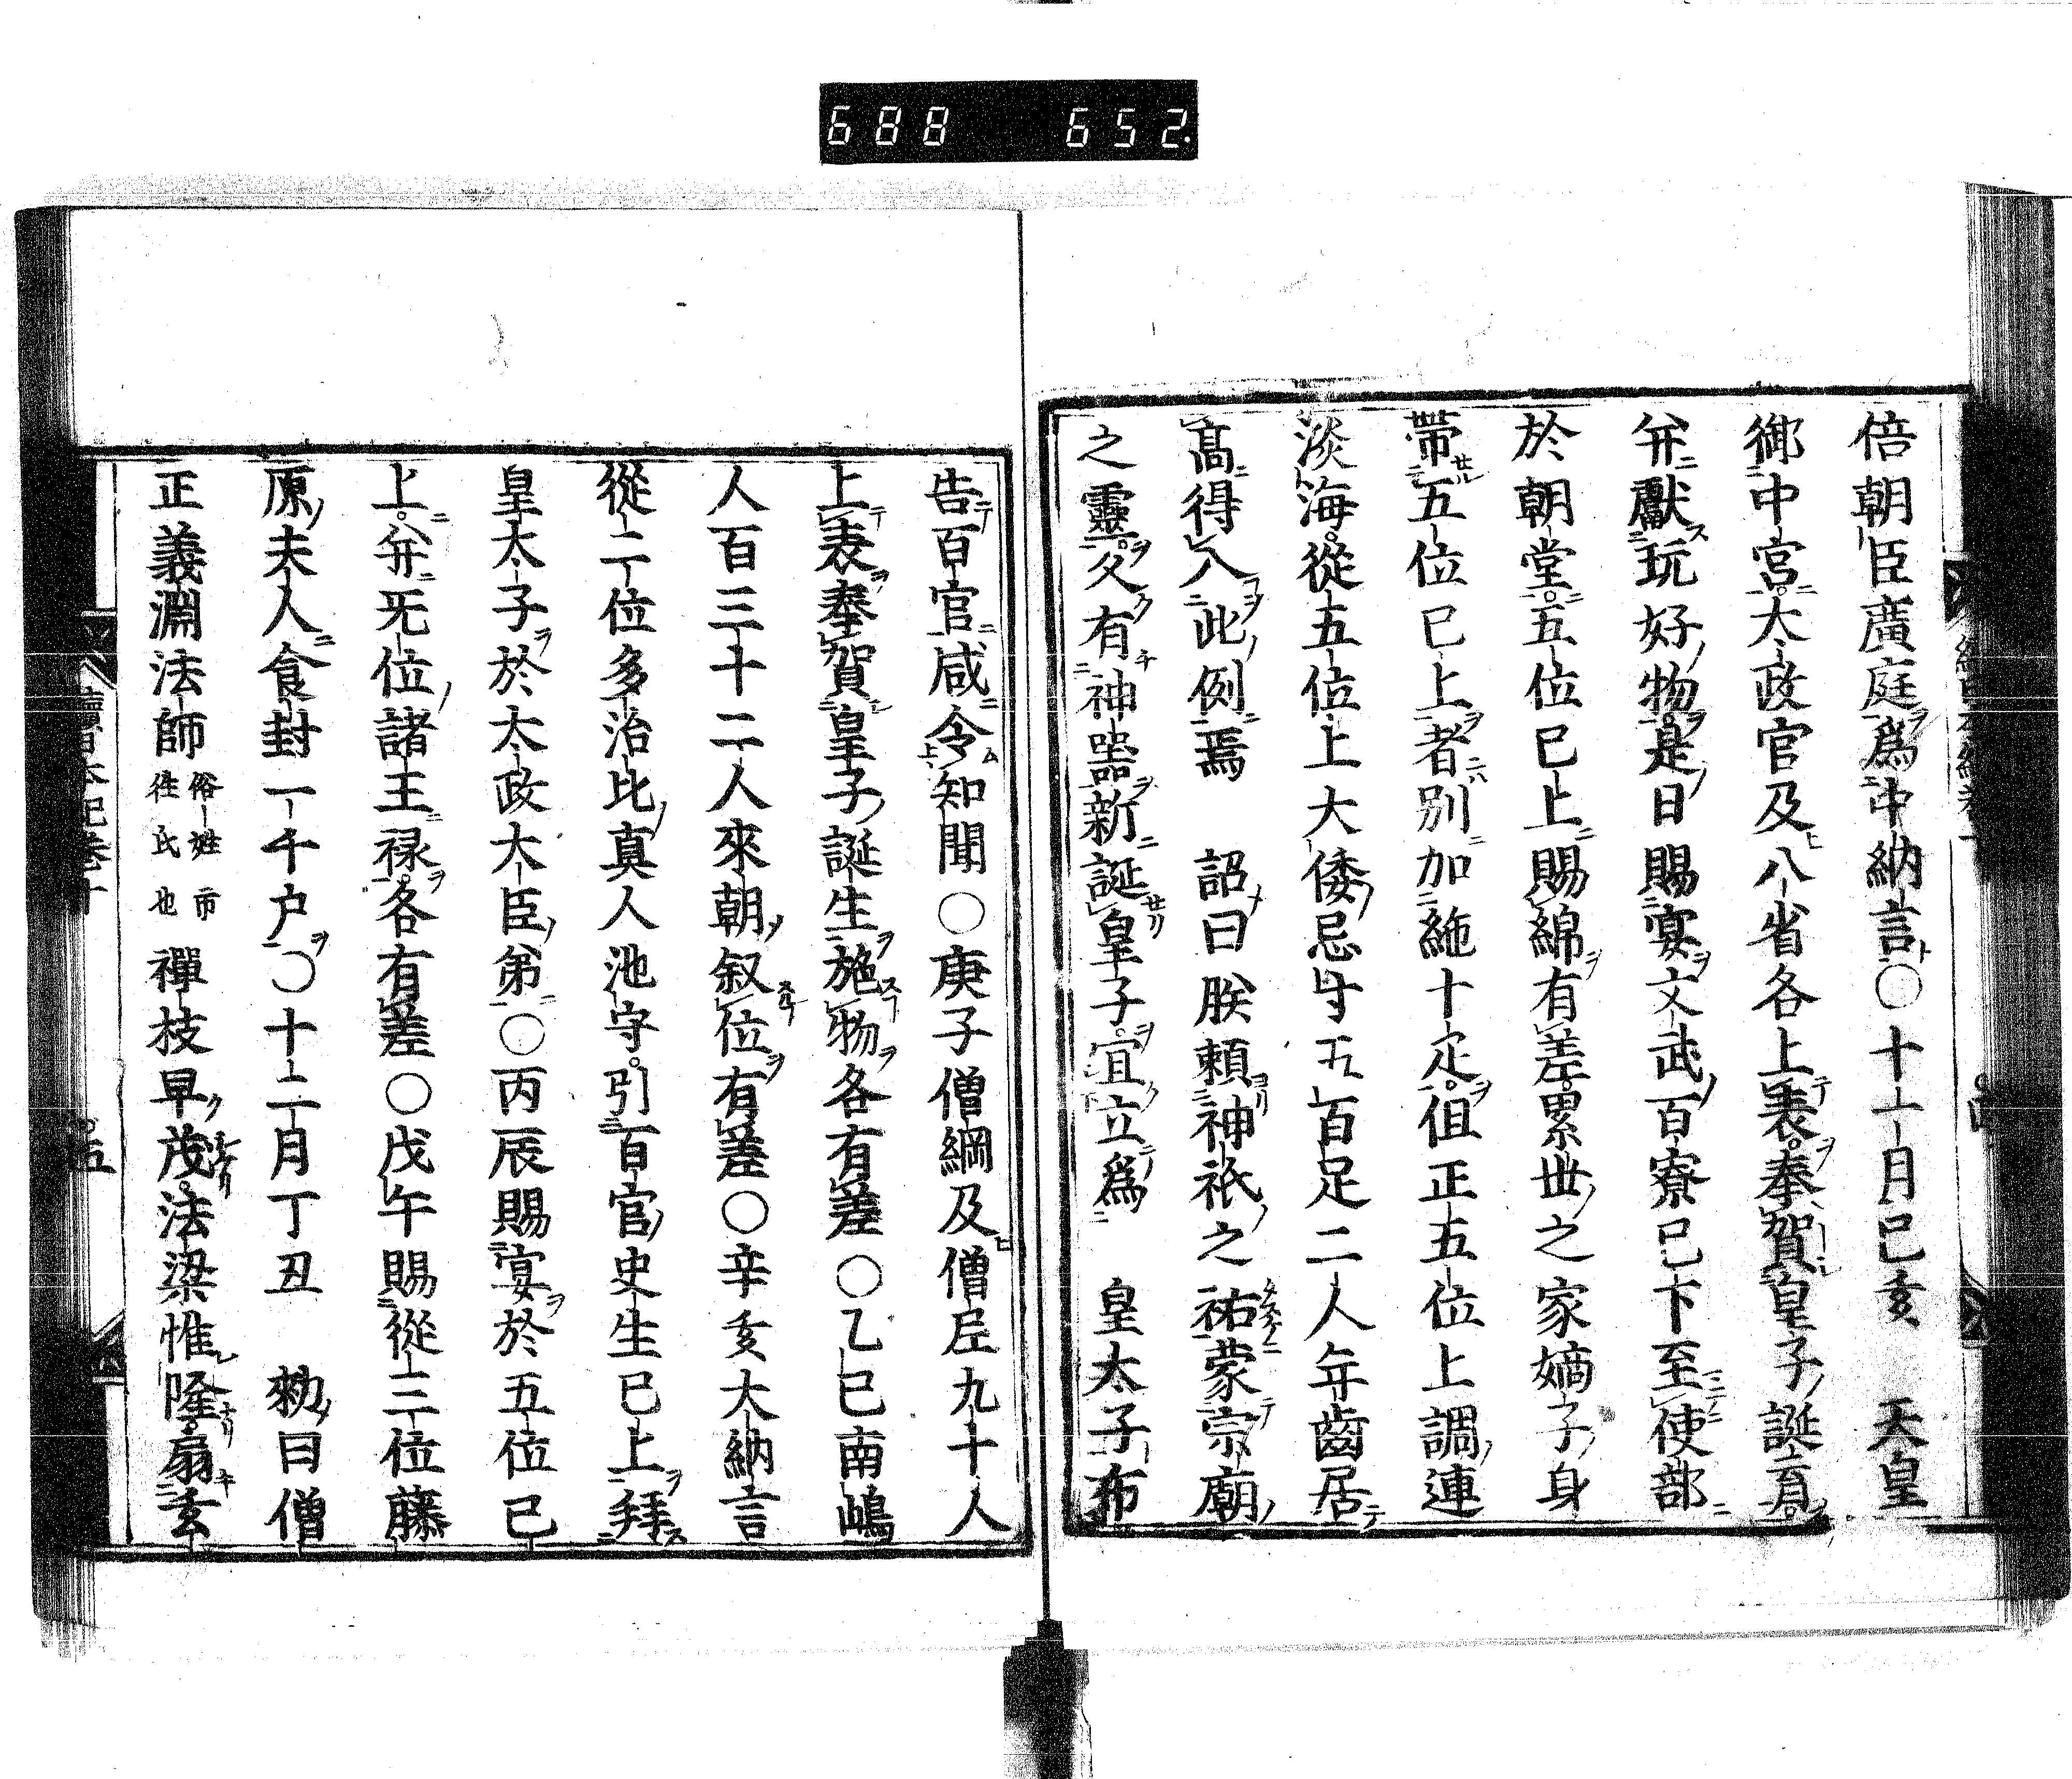 688 652
倍朝臣廣庭爲中納言○十一月己亥 天皇
御中宮太政官及八省各上表奉賀皇子誕育
并獻玩好物是日賜宴文武百寮已下至使部
於朝堂五位已上賜綿有差累世之家嫡子身
帶五位已上者別加絁十疋但正五位上調連
淡海從五位上大倭忌寸五百足二人年齒居
高得入此例焉 詔曰朕賴神祇之祐蒙宗廟
之靈久有神器新誕皇子宜立爲 皇太子布
告百官咸令知聞○庚子僧綱及僧尼九十人
上表奉賀皇子誕生施物各有差○乙巳南嶋
人百三十二人來朝叙位有差○辛亥大納言
從二位多治比真人池守引百官史生已上拜
皇太子於太政大臣第○丙辰賜宴於五位已
上并无位諸王祿各有差○戊午賜從三位藤
原夫人食封一千户○十二月丁丑 勑曰僧
正義淵法師俗姓市往氏也禪枝早茂法梁惟隆扇玄
續日本紀卷十
五